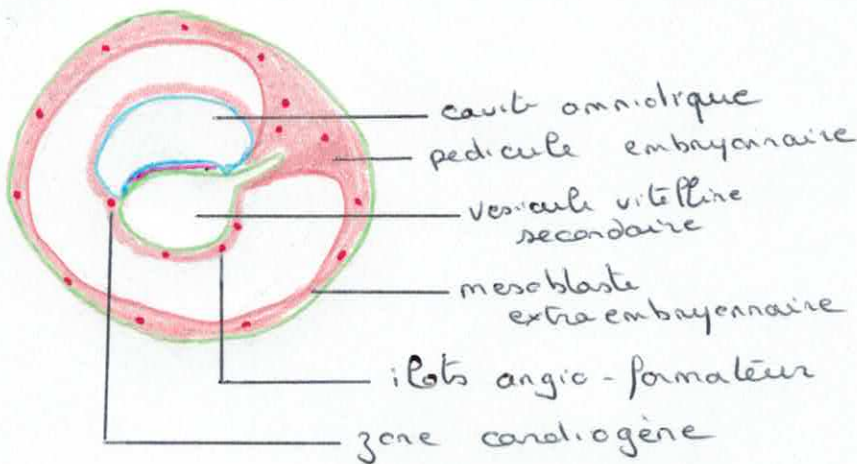 cavité amniotique
pedicule embryonnaire
vesicule vitelline
secondaire
mesoblaste
extra embryonnaire
ilots angio-formateur
zone cardiogène